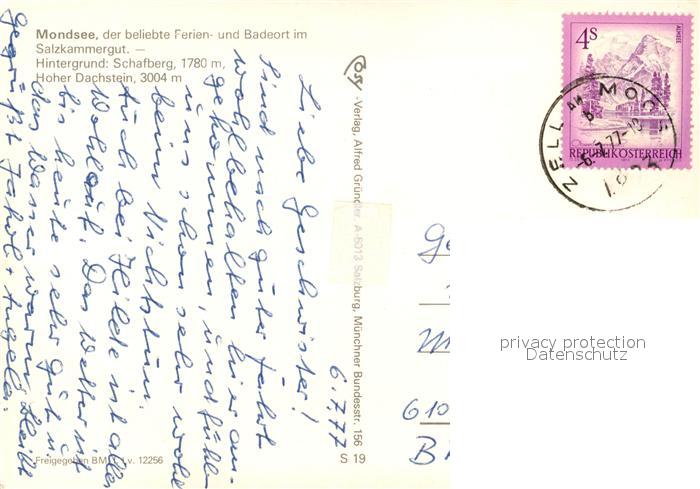 Mondsee, der beliebte Ferien- und Badeort im
Salzkammergut. —
Hintergrund: Schafberg, 1780 m,
Hoher Dachstein, 3004 m
6.7.77
Liebe Geschwister!
Sind nach guter Fahrt
wohlbehalten hier an-
gekommen, und fühlen
uns schon sehr wohl
beim Nichtstun.
Auch bei Hilde ist alles
Wohlauf. Das Wetter ist
bis heute sehr gut u.
das Wasser warm. Es bleibt
gegrüßt Jahol + Angela.
Cosy-Verlag, Alfred Gründler, A-5013 Salzburg, Münchner Bundesstr. 156
S 19
Freigegeben BM v. 12256
4S
ALMSEE
REPUBLIK ÖSTERREICH
ZELL AM MOOS
-6.7.77-18
Ge
M
610
B
privacy protection
Datenschutz